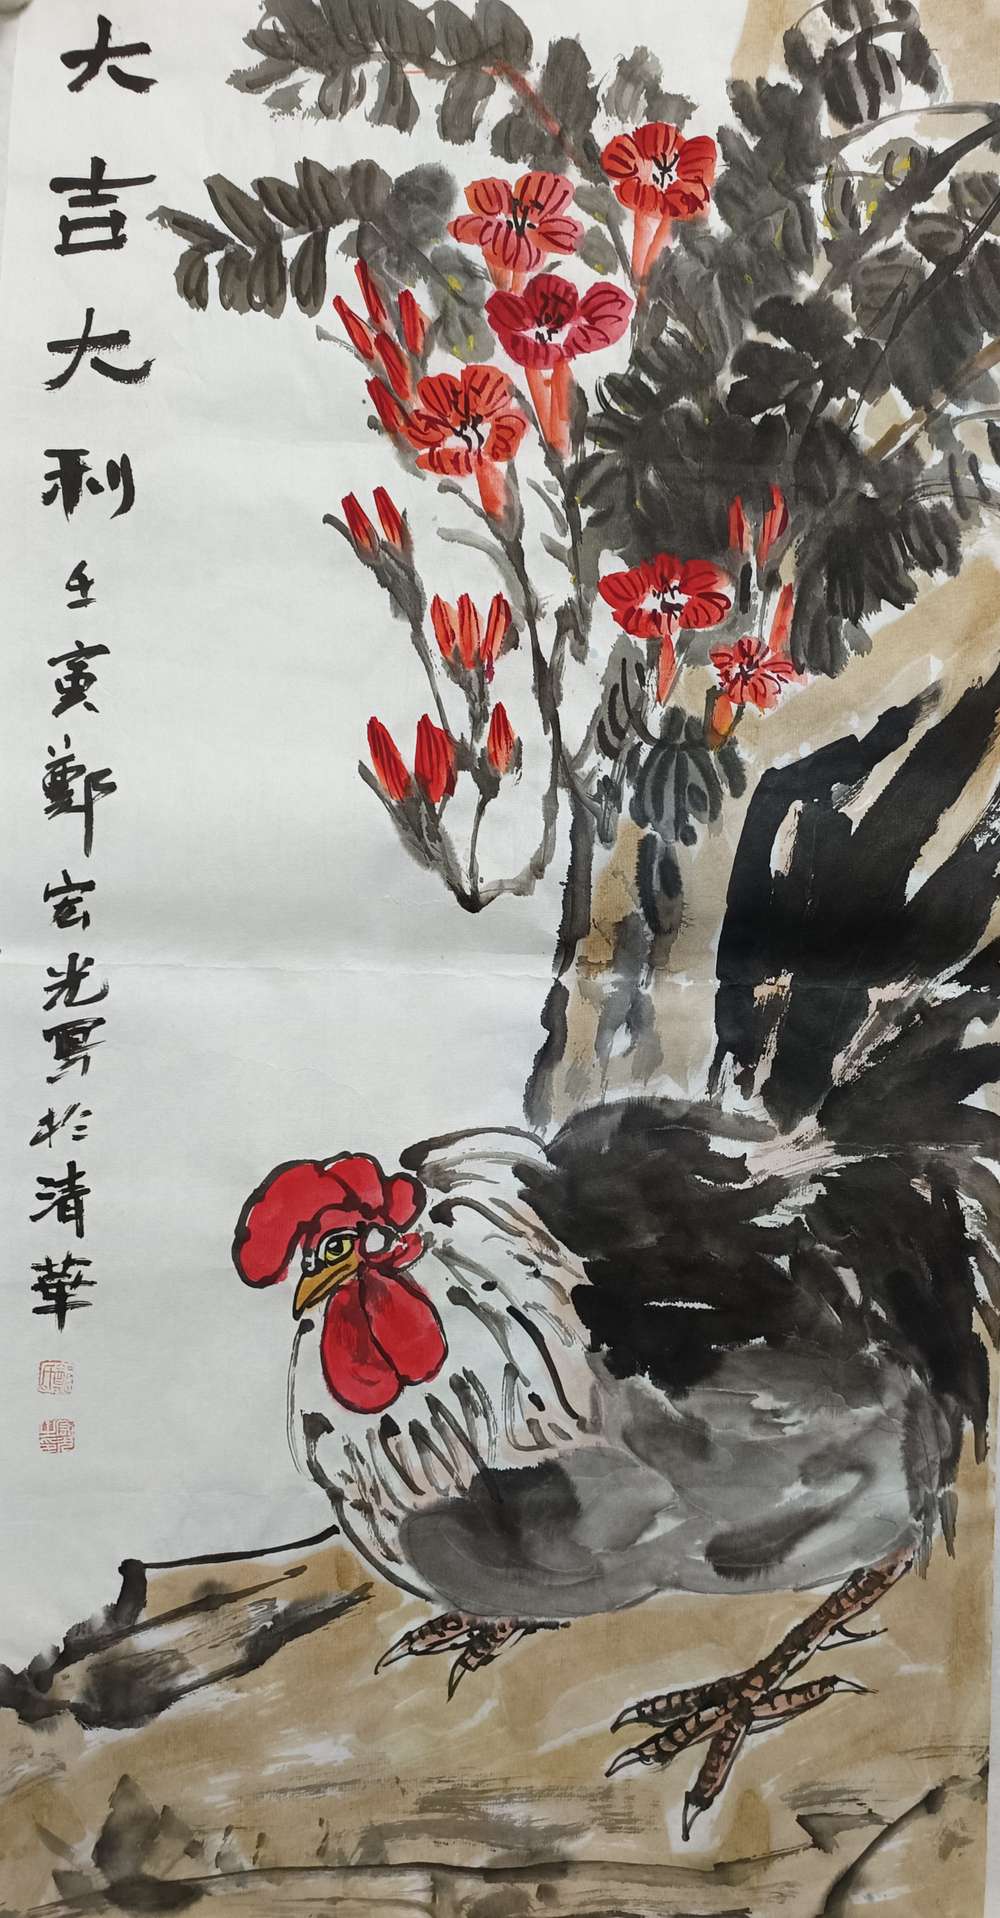 大吉大利壬寅鄭宏光写於清華